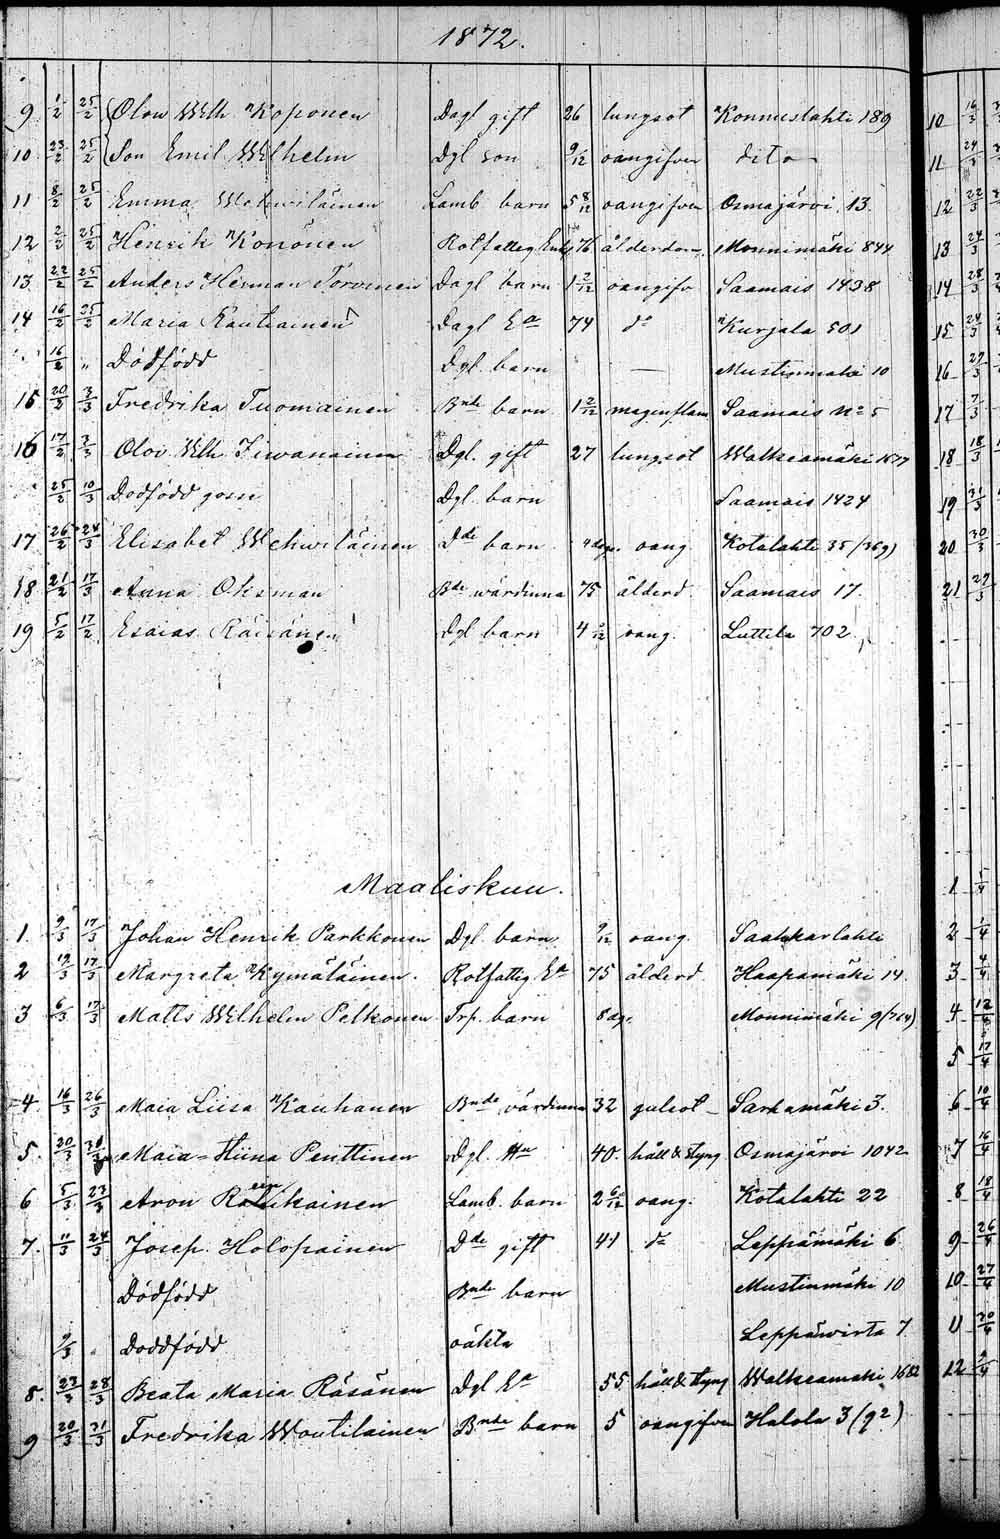 1872.
9 1/2 25/2 Olow Wilh Koponen Dagl gift 26 lungsot Konnuslahti 189
10 23/2 25/2 Son Emil Wilhelm Dgl son 9/12 oangifven dito
11 8/2 25/2 Emma Wehwiläinen Lamb barn 5 8/12 oangifven Osmajärvi 13.
12 2/2 25/2 Henrik Könönen Rotfattig Enkl 76 ålderdom Monnimäki 844
13 22/2 25/2 Anders Herman Torvinen Dagl barn 1 2/12 oangifv Saamais 1438
14 16/2 25/2 Maria Rautiainen Dagl Ea 74 do Kurjala 501
16/2 " Dödfödd Dgl. barn — Mustinmäki 10
15 20/2 3/3 Fredrika Tuomainen Bnde barn 1 2/12 maginflam Saamais No 5
16 17/2 3/3 Olov Wilh Iiwanainen Dgl. gift 27 lungsot Walkeamäki 1677
25/2 10/3 Dödfödd gosse Dgl barn Saamais 1424
17 26/2 24/3 Elisabet Wehwiläinen Dde barn oang Kotalahti 35 (369)
18 21/2 17/3 Anna Oksman Bde wärdinna 75 ålderd Saamais 17.
19 5/2 17/2 Esaias Räisänen Dgl barn 4 2/12 oang. Luttila 702
Maaliskuu.
1. 9/3 17/3 Johan Henrik Parkkonen Dgl. barn 9/12 oang. Saahkarlahti
2 12/3 17/3 Margreta Kymäläinen. Rotfattig Ea 75 ålderd Haapamäki 14.
3 6/3 17/3 Matts Wilhelm Pelkonen Trp. barn 8 dg. Monnimäki 9 (764)
4. 16/3 26/3 Maia Liisa Kauhanen Bnde värdinna 32 gulsot Sarkamäki 3.
5. 20/3 Maia-Stiina Penttinen Dgl. Hu 40. håll & styng Osmajärvi 1042
6 5/3 23/3 Aron Lamb. barn 2 6/12 oang. Kotalahti 22
7. 11/3 24/3 Josep. Holopainen Dde gift 41 do Leppämäki 6
Dödfödd Bnde barn Mustinmäki 10
9/3 Döddfödd oäkta Leppäwirta 7
8. 23/3 28/3 Beata Maria Räsänen Dgl Ea 55 håll & styng Walkeamäki 1682
9 20/3 31/3 Fredrika Woutilainen Bnde barn 5 oangifven Halola 3 (92)
10 16/3
11 24/3
12 22/3
13 24/3
14 28/3
15 24/3
16 27/3
17 7/3
18 18/3
19 31/3
20 30/3
21 27/3
1 5/4
2 1/4
3 4/4
4 12/4
5 17/4
6 10/4
7 16/4
8 18/4
9 26/4
10 27/4
11 30/4
12 2/4